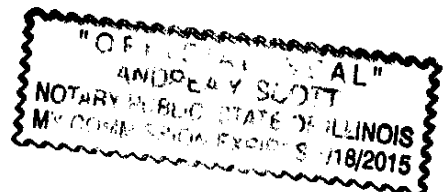 "OFFICIAL SEAL"
NOTARY PUBLIC STATE OF ILLINOIS
MY COMMISSION EXPIRES /18/2015